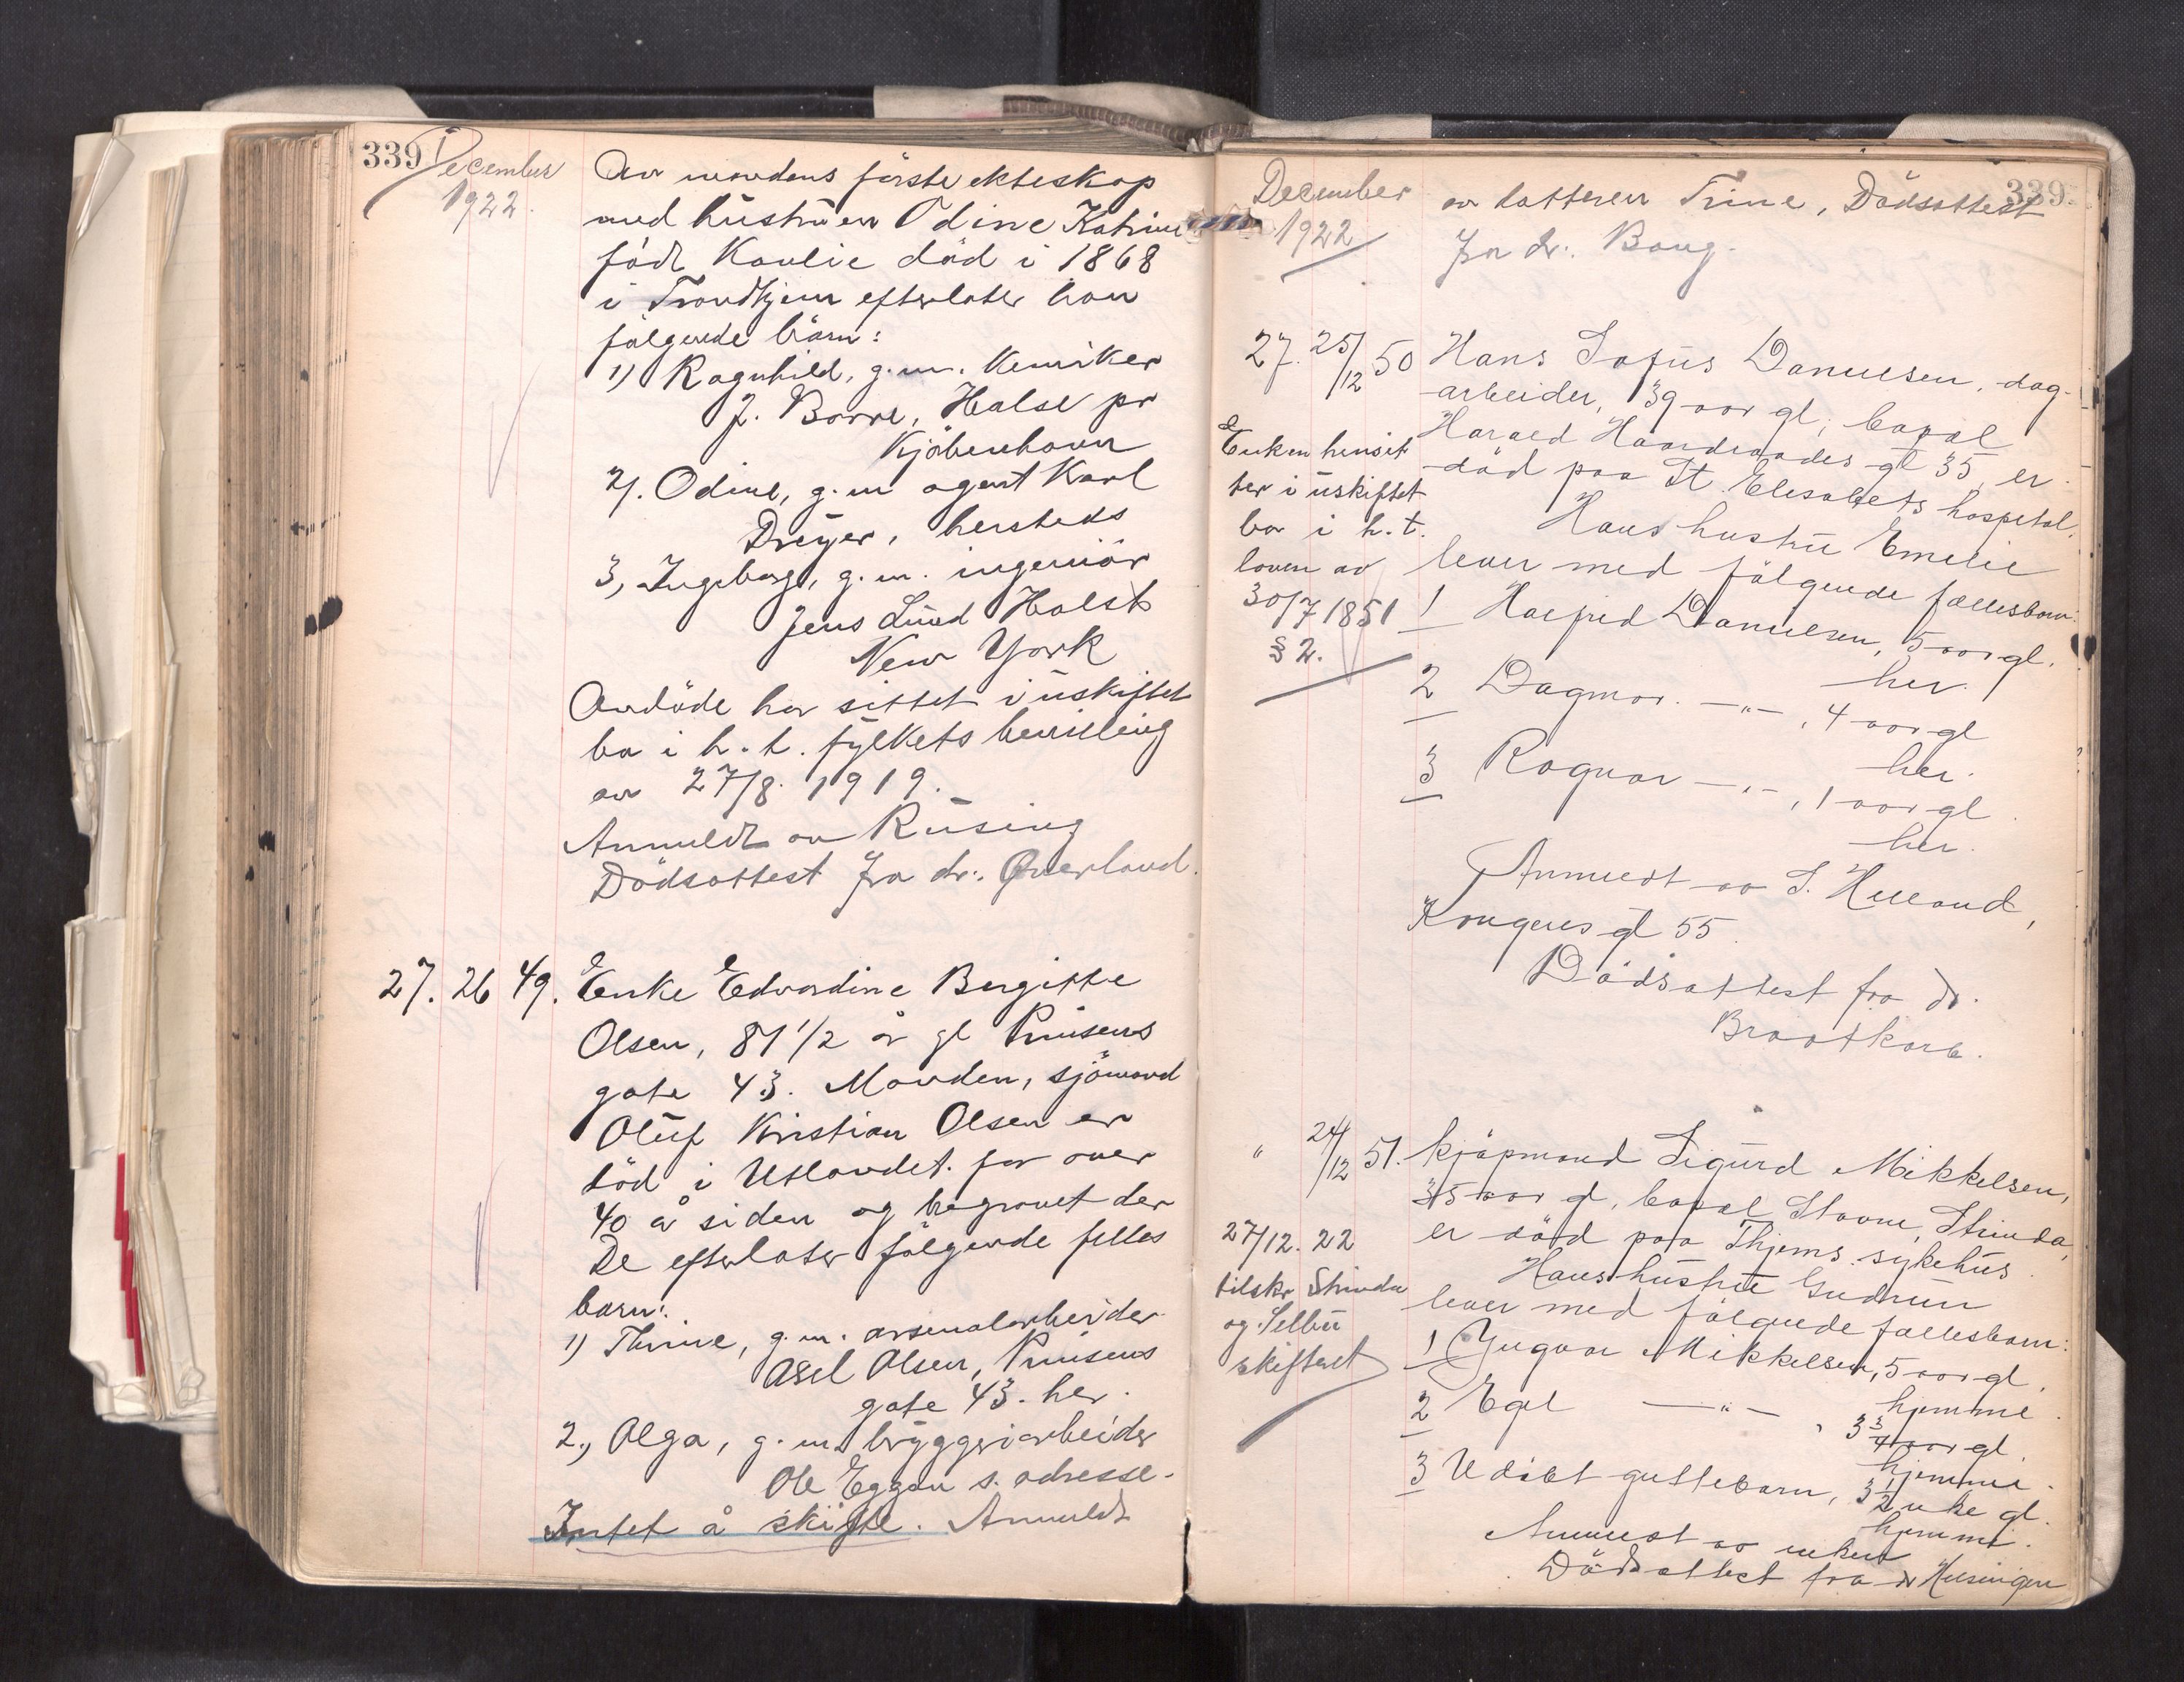 339
December
1922.
Av mandens første ekteskap
med hustruen Odine Katrine
født Kaulie død i 1868
i Trondhjem efterlater han
følgende børn:
1) Ragnhild, g.m. kemiker
J. Borre, Halse pr
Kjøbenhavn
2). Odine, g.m agent Karl
Dreyer, hersteds
3, Ingeborg, g.m. ingeniør
Jens Lund Holst
New York
Avdøde har sittet i uskiftet
bo i h.t. fylkets bevilling
av 27/8. 1919.
Anmeldt av Rusing
Dødsattest fra dr. Øverland.
27. 26 49. Enke Edvardine Bergitte
Olsen, 81 1/2 år gl Prinsens
gate 43. Manden, sjømand
Oluf Kristian Olsen er
død i Utlandet for over
40 år siden og begravet der
De efterlater følgende felles
barn:
1) Thrine, g.m. arsenalarbeider
Axel Olsen, Prinsens
gate 43. her.
2., Olga, g.m. bryggeriarbeider
Ole Eggen s. adresse.
Intet å skifte. Anmeldt
339
December
1922
av datteren Trine, Dødsattest
fra dr. Boug.
27. 25/12 50 Hans Sofus Danielsen, dag-
arbeider, 39 aar gl, bopæl
Harald Haardraades gt 35, er
død paa St. Elisabets hospital.
Hans hustru Emelie
lever med følgende fællesbarn:
1 Halfrid Danielsen, 5 aar gl,
her.
2 Dagmar. —"—, 4 aar gl
her.
3 Ragnar —"—, 1 aar gl
her.
Anmeldt av S. Helland,
Kongens gt 55.
Dødsattest fra dr.
Braatkorb.
Enken hensit
ter i uskiftet
bo i h.t.
loven av
30/7 1851
§ 2.
" 24/12 51. Kjøpmand Sigurd Mikkelsen,
35 aar gl, bopæl Stavne, Strinda,
er død paa Thjems sykehus.
Hans hustru Gudrun
lever med følgende fællesbarn:
1 Yngvar Mikkelsen, 5 aar gl,
hjemme.
2 Egil —"—, 3 3/4 aar gl.
hjemme.
3 Udøbt guttebarn, 3 1/2 uke gl.
hjemme.
Anmeldt av enken
Dødsattest fra dr Helsingen
27/12. 22
tilskr Strinda
og Selbu
skifteret